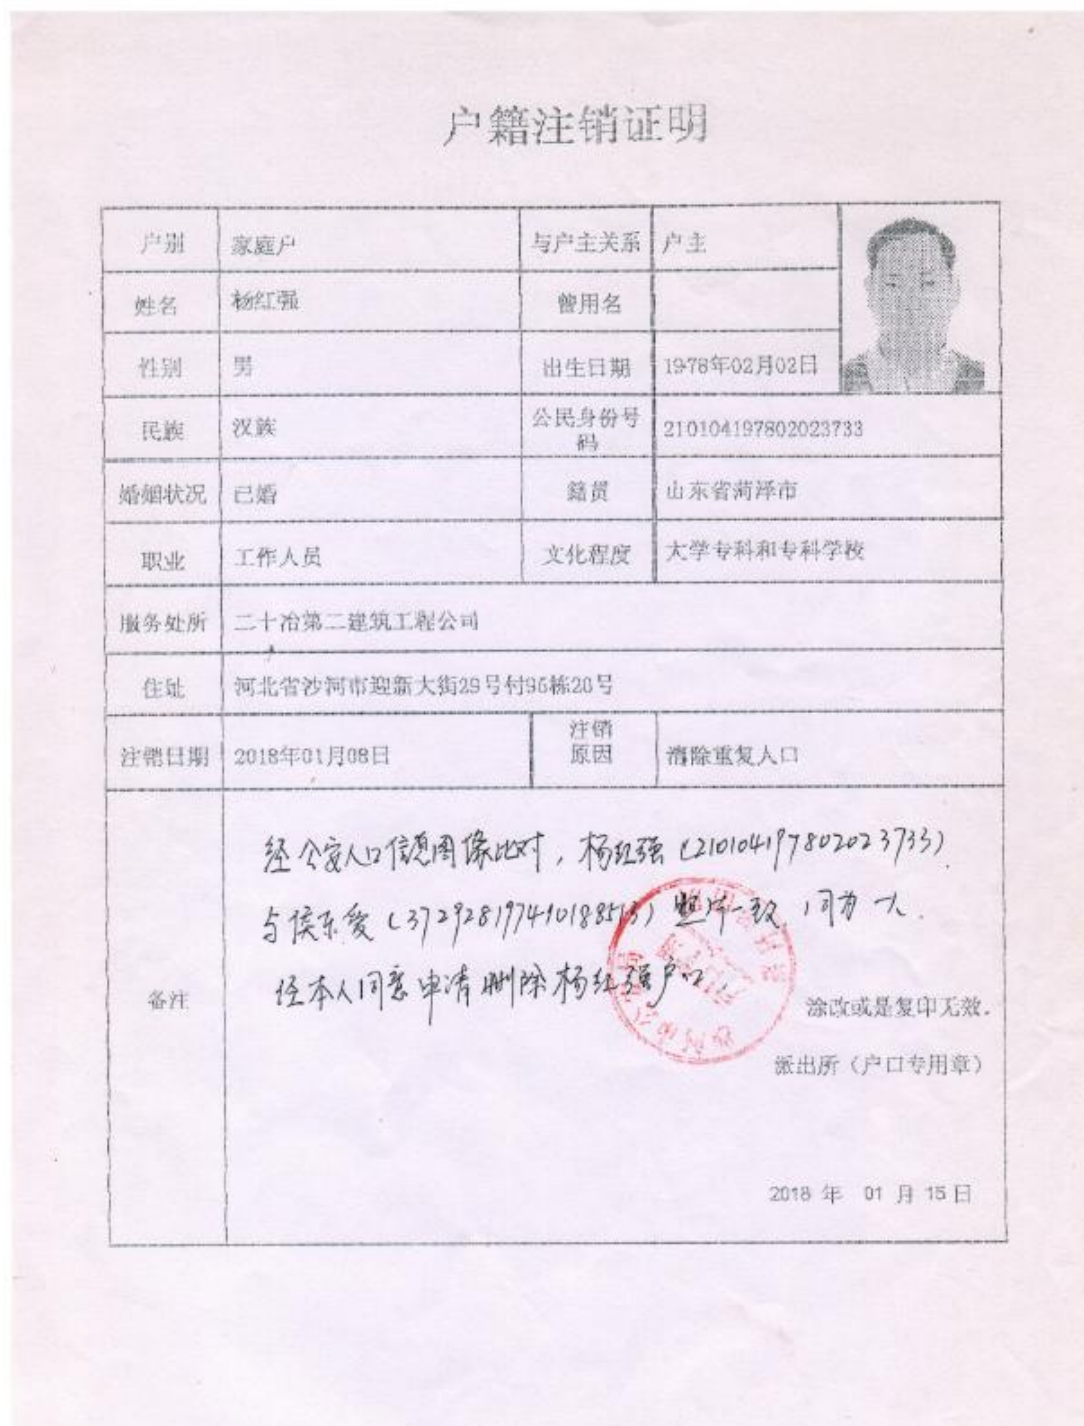 户籍注销证明
户别 家庭户 与户主关系 户主
姓名 杨红强 曾用名
性别 男 出生日期 1978年02月02日
民族 汉族 公民身份号码 210104197802023733
婚姻状况 已婚 籍贯 山东省菏泽市
职业 工作人员 文化程度 大学专科和专科学校
服务处所 二十冶第二建筑工程公司
住址 河北省沙河市迎新大街29号付95栋20号
注销日期 2018年01月08日 注销原因 清除重复人口
备注
经公安人口信息图像比对，杨红强（210104197802023733）
与侯东爱（）照片一致，同为一人.
经本人同意申请删除杨红强户口.
涂改或是复印无效.
派出所（户口专用章）
2018 年 01 月 15 日